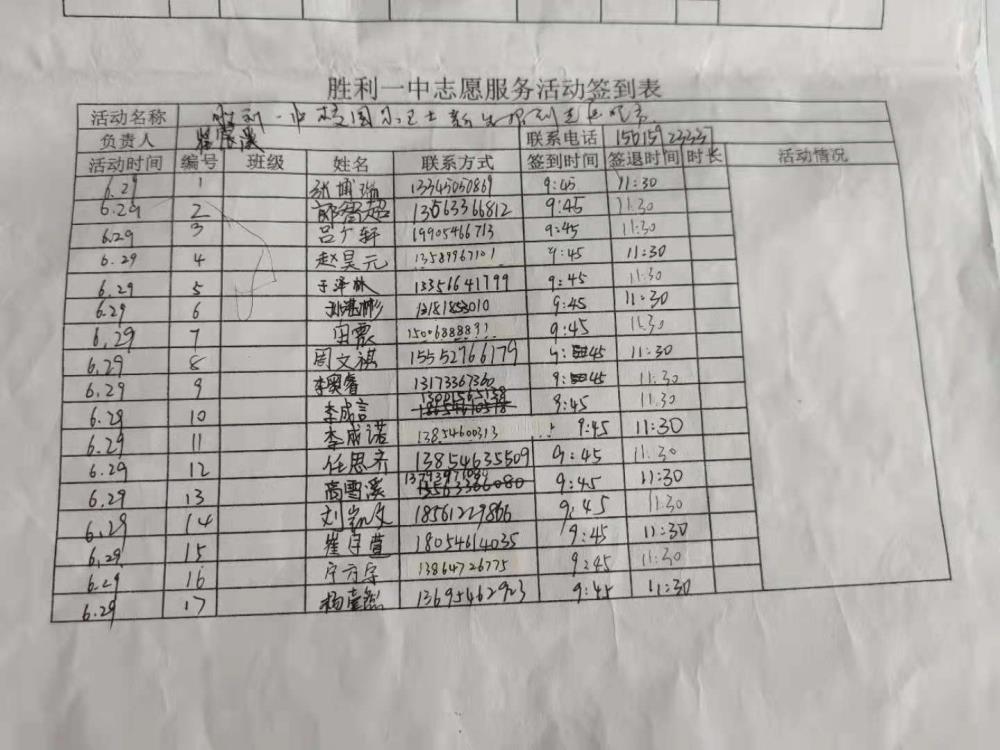 胜利一中志愿服务活动签到表
活动名称 胜利一中校园
负责人 联系电话
活动时间 编号 班级 姓名 联系方式 签到时间 签退时间 时长 活动情况
6.29 1 张博瑞 13345050869 9:45 11:30
6.29 2 郭智超 13563366812 9:45 11:30
6.29 3 吕广轩 19905466713 9:45 11:30
6.29 4 赵昊元 13589967101 9:45 11:30
6.29 5 于泽林 13356641799 9:45 11:30
6.29 6 9:45 11:30
6.29 7 田震 9:45 11:30
6.29 8 周文祺 15552766179 9:45 11:30
6.29 9 李奕睿 13173367360 9:45 11:30
6.29 10 李成言 9:45 11:30
6.29 11 李成诺 13854600313 9:45 11:30
6.29 12 任思齐 13854635509 9:45 11:30
6.29 13 高雪溪 9:45 11:30
6.29 14 18561229866 9:45 11:30
6.29 15 18054614035 9:45 11:30
6.29 16 13864726775 9:45 11:30
6.29 17 13695462923 9:45 11:30